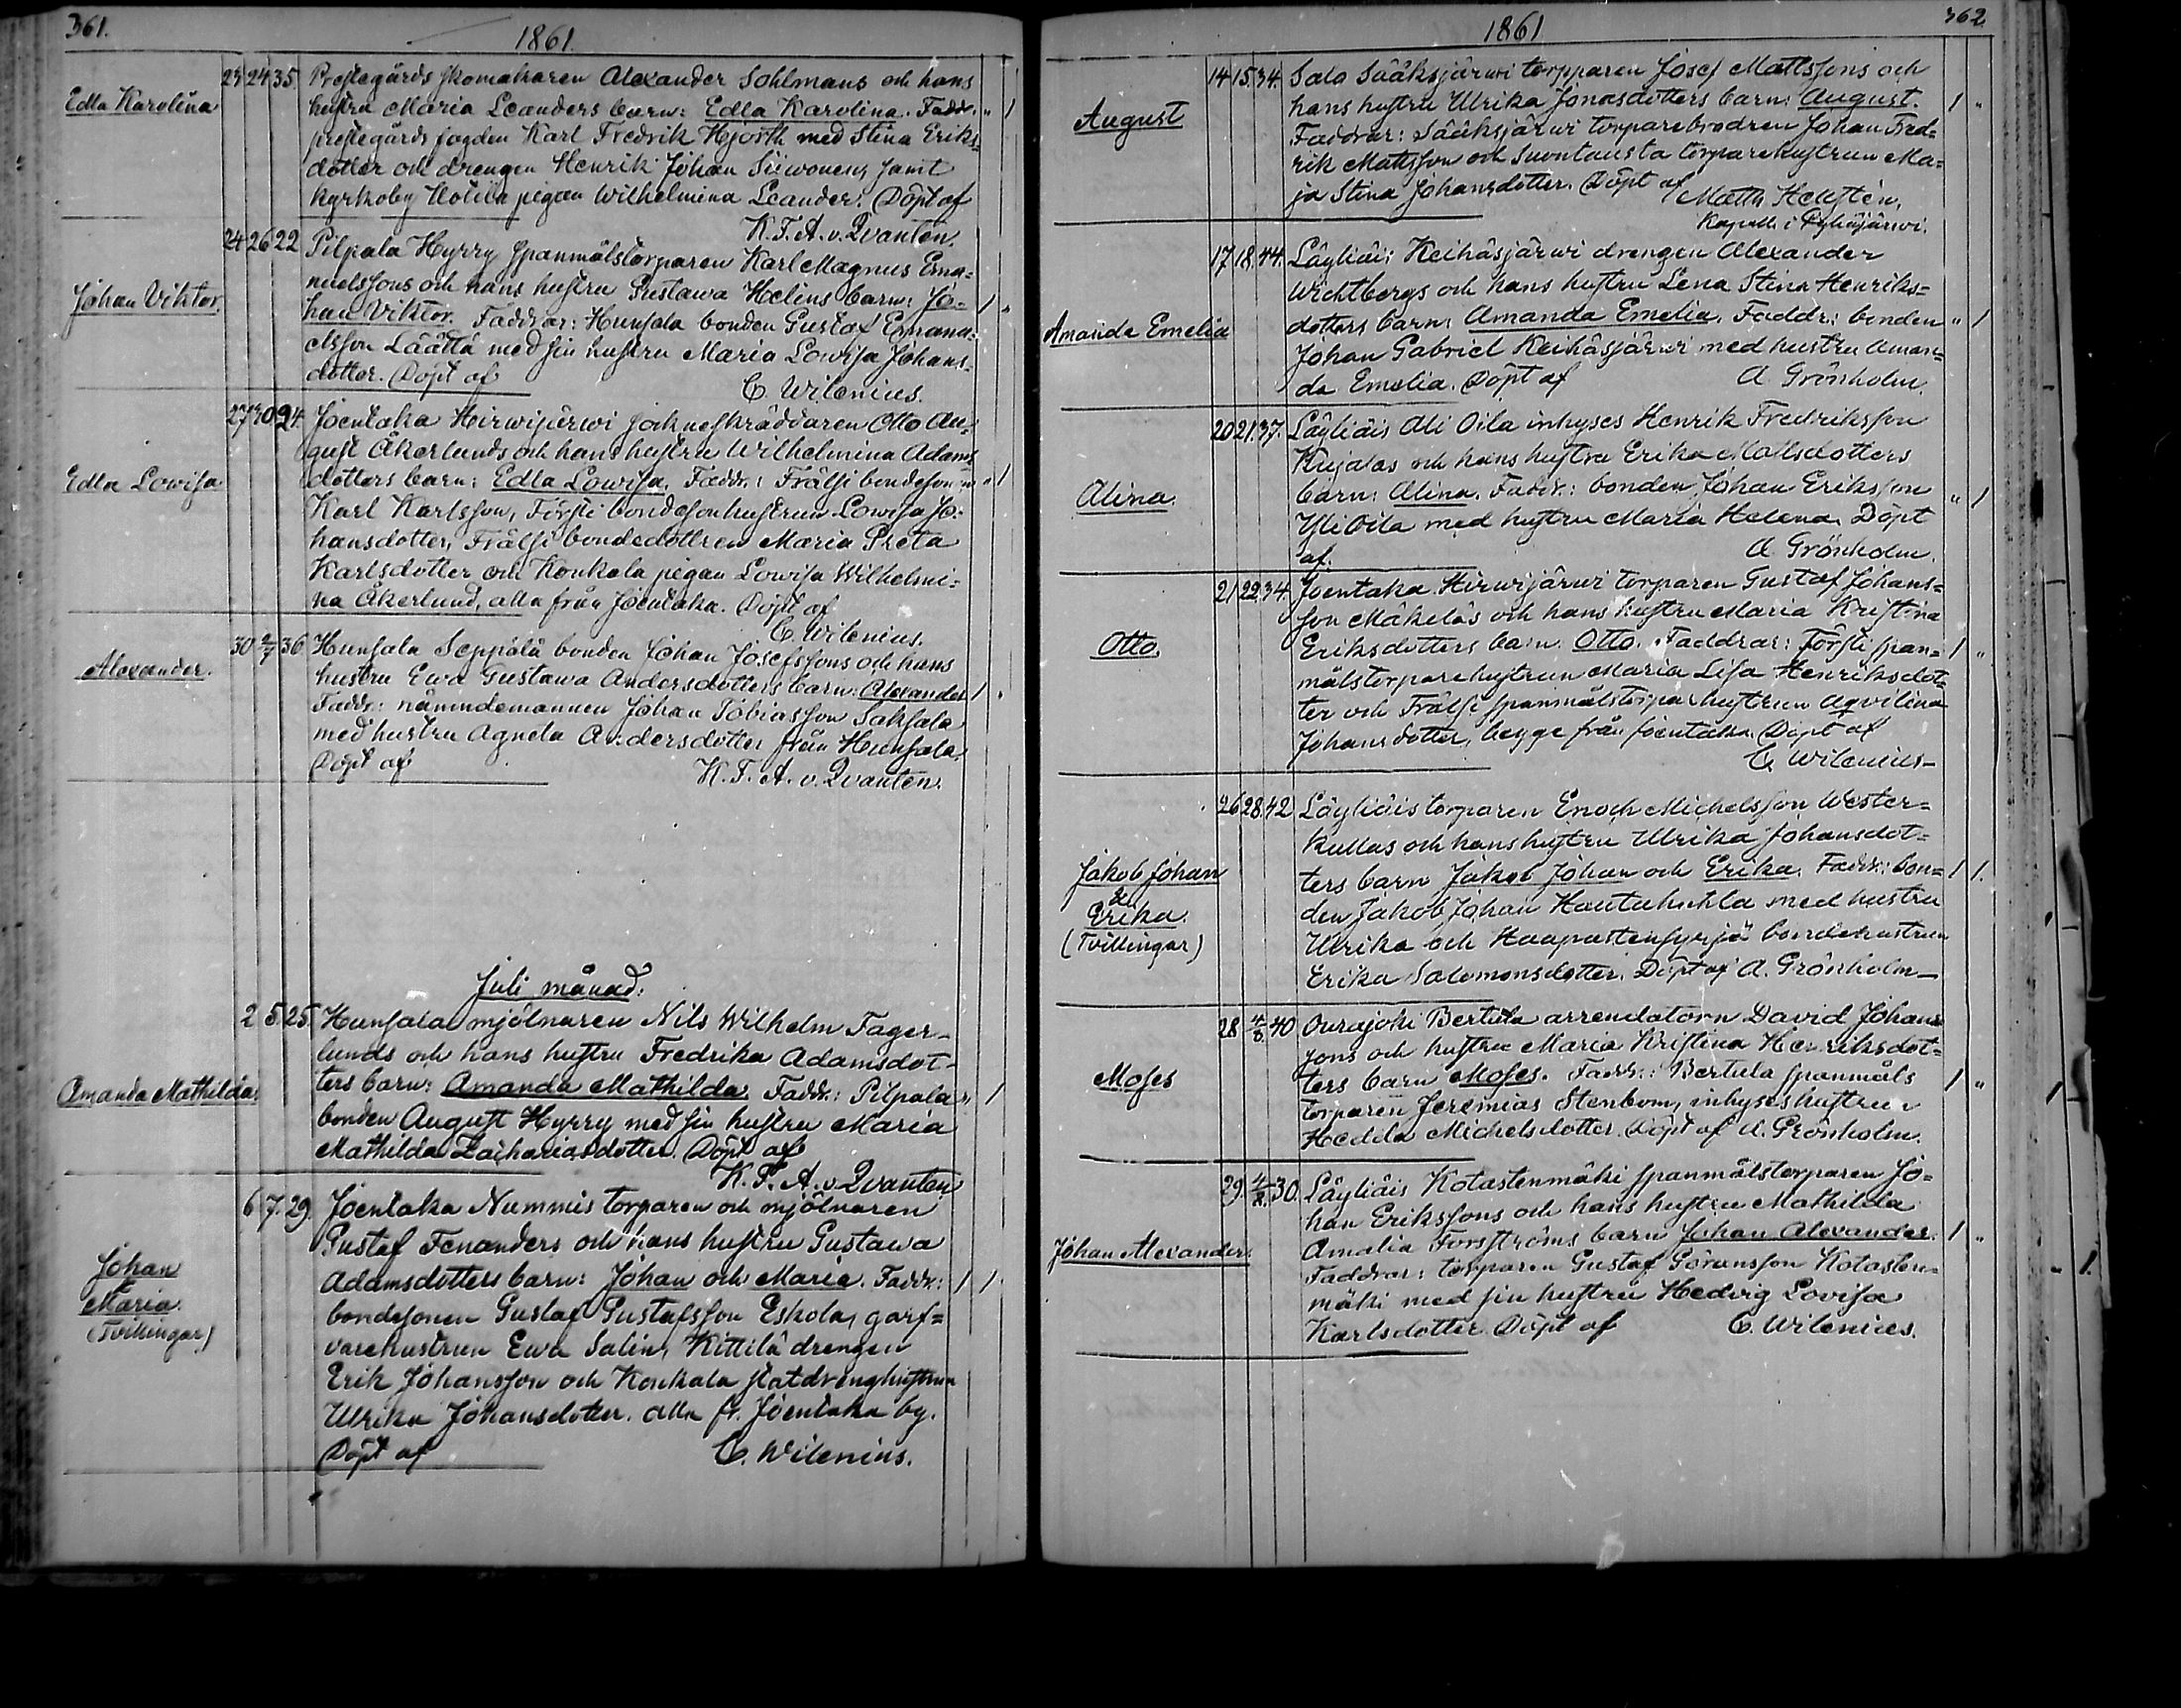 361.
1861.
Edla Karolina
23 24 35. Prestegårds skomakaren Alexander Sohlmans och hans
hustru Maria Leanders barn: Edla Karolina. Faddr. " 1
prestegårds fogden Karl Fredrik Hjorth med Stina Eriks=
dotter och drengen Henrik Johan Siiwonens samt
Kyrkoby Uotila pigan Wilhelmina Leander. Döpt af
K. F. A. v. Qvantén.
Johan Viktor.
24 26 22 Pilpala Hyrry spanmålstorparen Karl Magnus Ema=
nuelssons och hans hustru Gustawa Helins barn: Jo= 1 "
han Viktor. Faddrar: Hunsala bonden Gustaf Emanu=
elsson Läättä med sin hustru Maria Lowisa Johans=
dotter. Döpt af
C. Wilenius.
Edla Lowisa
27 30 24. Joentaka Hirwijärwi sockneskräddaren Otto Au=
gust Åkerlunds och hans hustru Wilhelmina Adams
dotters barn: Edla Lowisa. Faddr.: Frälsi bondeson " 1
Karl Karlsson, Försti bondesonhustrun Lowisa Jo=
hansdotter, Frälsi bondedottren Maria Greta
Karlsdotter och Konkala pigan Lowisa Wilhelmi=
na Åkerlund, alla från Joentaka. Döpt af
C. Wilenius.
Alexander.
30 2/7 36 Hunsala Seppälä bonden Johan Josefssons och hans
hustru Ewa Gustawa Andersdotters barn: Alexander 1 "
Faddr.: nämndemannen Johan Tobiasson Saksala
med hustru Agneta Andersdotter från Hunsala.
Döpt af
K. F. A. v. Qvantén.
Juli månad.
Amanda Mathilda.
2 5 25. Hunsala mjölnaren Nils Wilhelm Fager-
lunds och hans hustru Fredrika Adamsdot-
ters barn: Amanda Mathilda. Faddr.: Pilpala " 1
bonden August Hyrry med sin hustru Maria
Mathilda Zachariasdotter. Döpt af
K. F. A. v. Qvanten
Johan
&
Maria.
(Tvillingar)
6 7. 29. Joentaka Nummis torparen och mjölnaren
Gustaf Fenanders och hans hustru Gustawa
Adamsdotters barn: Johan och Maria. Faddr.: 1 1
bondsonen Gustaf Gustafsson Eskola, garf=
varehustrun Ewa Salin, Kittilä drengen
Erik Johansson och Konkala statdrenghustrun
Ulrika Johansdotter. alla fr. Joentaka by.
Döpt af
C. Wilenius.
362
1861
August
14 15. 34. Salo Sääksjärwi torpparen Josef Mattssons och
hans hustru Ulrika Jonasdotters barn: August. 1 "
Faddrar: Sääksjärwi torparebrodren Johan Fred=
rik Mattsson och Suontausta torparehustrun Ma=
ja Stina Johansdotter. Döpt af
Matth. Hellstén,
Kapell. i Pyhäjärwi.
Amanda Emelia
17 18. 44. Läyliäis Keihäsjärwi drengen Alexander
Wichtbergs och hans hustru Lena Stina Henriks=
dotters barn: Amanda Emelia. Faddr.: bonden " 1
Johan Gabriel Keihäsjärwi med hustru Aman=
da Emelia. Döpt af
A. Grönholm.
Alina.
20 21. 37. Läyliäis Ali Oila inhyses Henrik Fredriksson
Kujalas och hans hustru Erika Mattsdotters
barn: Alina. Faddr.: bonden Johan Eriksson " 1
Yli Oila med hustru Maria Helena. Döpt
af.
A. Grönholm.
Otto.
21 22. 34. Joentaka Hirwijärwi torparen Gustaf Johans=
son Mäkeläs och hans hustru Maria Kristina
Eriksdotters barn: Otto. Faddrar: Försti span= 1 "
målstorparehustrun Maria Lisa Henriksdot=
ter och Frälsi spanmålstorparhustrun Aqvilina
Johansdotter, begge från Joentaka. Döpt af
C. Wilenius-
Jakob Johan
&
Erika.
(Tvillingar)
26 28. 42 Läyliäis torparen Enoch Michelsson Wester=
kullas och hans hustru Ulrika Johansdot=
ters barn Jakob Johan och Erika. Faddr.: bon= 1 1.
den Jakob Johan Hautahuhta med hustru
Ulrika och Haapastensyrjä bondehustrun
Erika Salomonsdotter. Döpt af A. Grönholm-
Moses
28 4/8. 40 Ourajoki Bertula arrendatorn David Johans
sons och hustru Maria Kristina Henriksdot=
ters barn Moses. Faddr.: Bertula spanmåls 1 "
torparen Jeremias Stenbom, inhyseshustrun
Hedda Michelsdotter. Döpt af A. Grönholm.
Johan Alexander.
29. 4/8. 30. Läyliäis Kotastenmäki spanmålstorparen Jo=
han Erikssons och hans hustru Mathilda
Amalia Forsströms barn Johan Alexander. 1 "
Faddrar: torparen Gustaf Göransson Kotasten=
mäki med sin hustru Hedvig Lovisa
Karlsdotter. Döpt af
C. Wilenius.